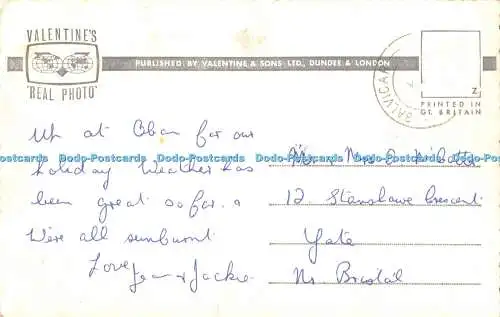 VALENTINE'S
"REAL PHOTO"
PUBLISHED BY VALENTINE & SONS LTD., DUNDEE & LONDON
BALVICAR
Z
PRINTED IN
GT. BRITAIN
Up at Oban for our
holiday Weather has
been great so far. &
We're all sunburnt
Love
Jean & Jackie
Mr. & Mrs
12. Stanshawe Crescent
Yate
Nr. Bristol
Dodo-Postcards Dodo-Postcards Dodo-Postcards Dodo-Postcards Dodo-Postcards Dodo-Postcards Dodo-Postcards